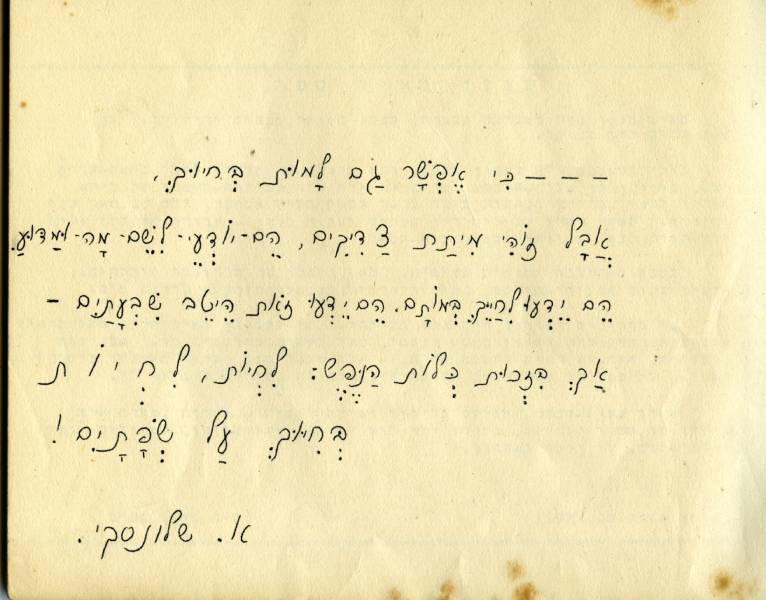 – – – כִּי אֶפְשָׁר גַּם לָמוּת בְּחִיּוּךְ,
אֲבָל זוֹהִי מִיתַת צַדִּיקִים, הֵם-יוֹדְעֵי-לְשֵׁם-מָה-וּמַדּוּעַ.
הֵם יֵדְעוּ לְחַיֵּךְ בְּמוֹתָם. הֵם יֵדְעוּ זֹאת הֵיטֵב שִׁבְעָתַיִם –
אַךְ בִּזְכוּת כְּלוֹת הַנֶּפֶשׁ: לִחְיוֹת, לִ חְ י וֹ ת
בְּחִיּוּךְ עַל שְׂפָתַיִם!
א. שלונסקי.